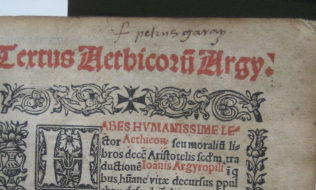 f petrus garay
Textus Aethicorũ Argy:
HABES HVMANISSIME LE
ctor Aethicorũ seu moraliũ li
bros decē Aristotelis secdm, tra
ductionē Ioanis Argyropili i q
bus hũane vitæ decursus ppu